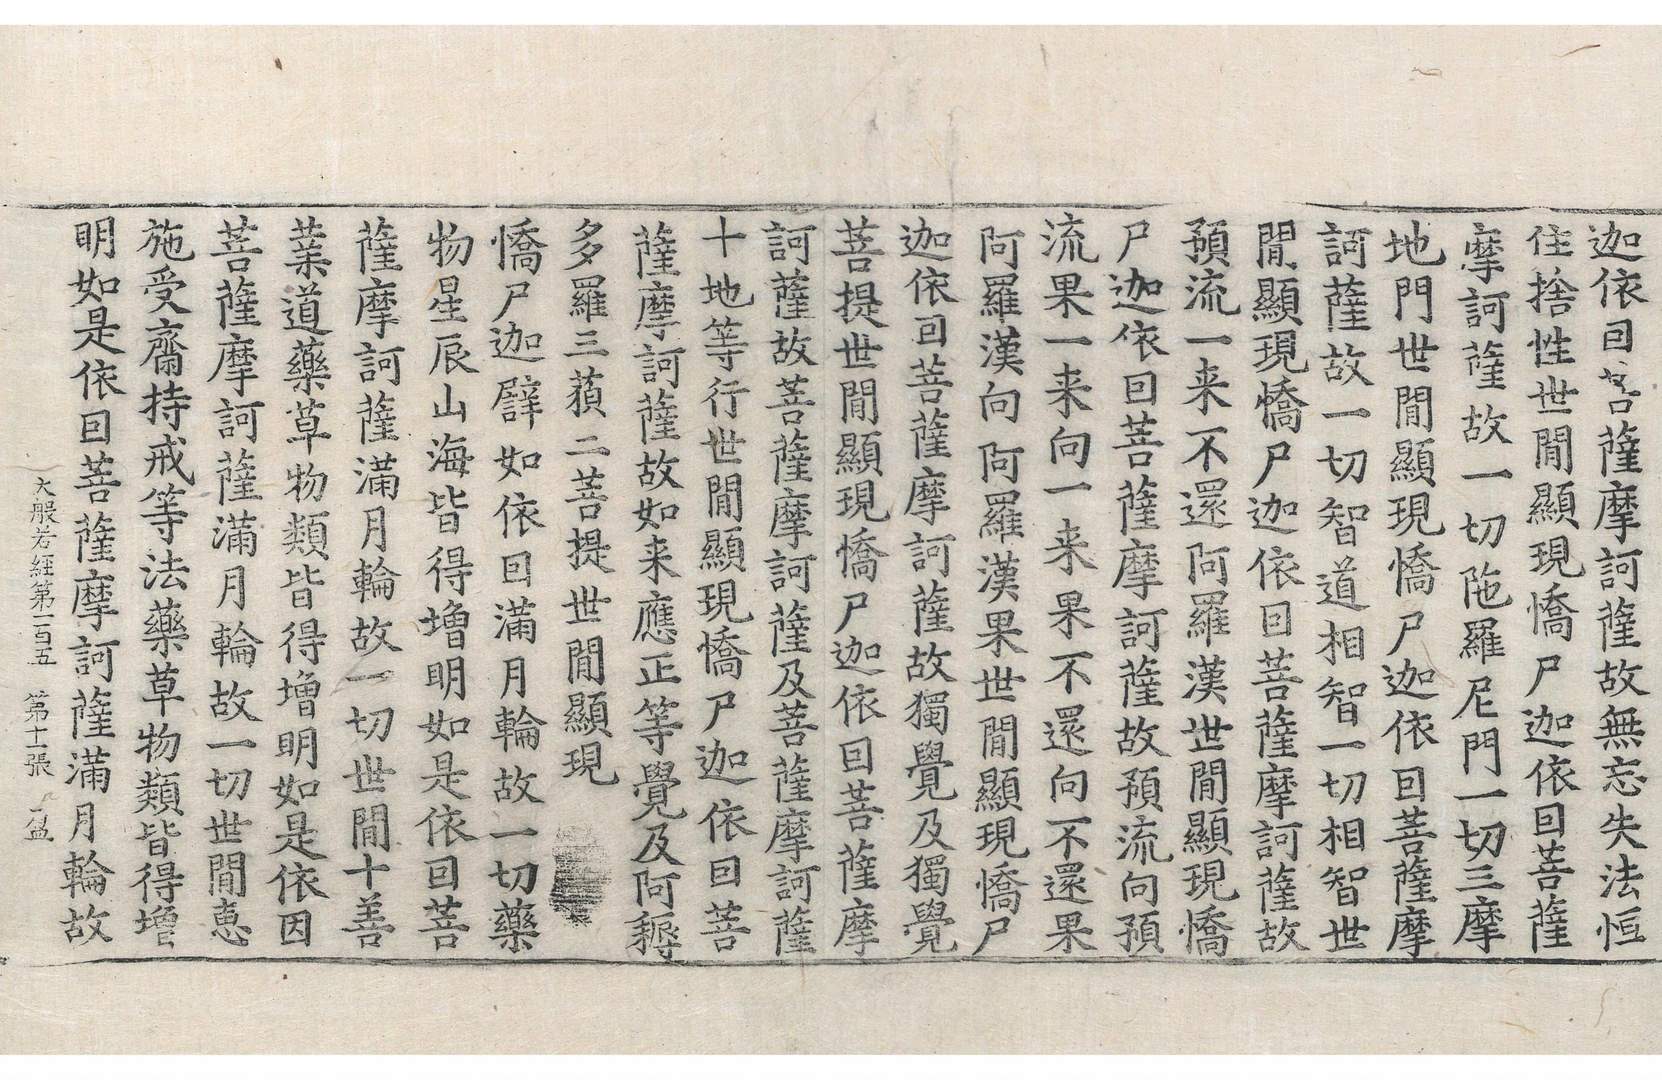 迦依回菩薩摩訶薩故無忘失法恒
住捨性世閒顯現憍尸迦依回菩薩
摩訶薩故一切陁羅尼門一切三摩
地門世閒顯現憍尸迦依回菩薩摩
訶薩故一切智道相智一切相智世
閒顯現憍尸迦依回菩薩摩訶薩故
預流一来不還阿羅漢世閒顯現憍
尸迦依回菩薩摩訶薩故預流向預
流果一来向一来果不還向不還果
阿羅漢向阿羅漢果世閒顯現憍尸
迦依回菩薩摩訶薩故獨覺及獨覺
菩提世閒顯現憍尸迦依回菩薩摩
訶薩故菩薩摩訶薩及菩薩摩訶薩
十地等行世閒顯現憍尸迦依回菩
薩摩訶薩故如来應正等覺及阿耨
多羅三藐三菩提世閒顯現
憍尸迦譬如依回滿月輪故一切藥
物星辰山海皆得增明如是依回菩
薩摩訶薩滿月輪故一切世閒十善
業道藥草物類皆得增明如是依因
菩薩摩訶薩滿月輪故一切世閒恵
施受齋持戒等法藥草物類皆得增
明如是依回菩薩摩訶薩滿月輪故
大般若經第一百五 第十一張 盈